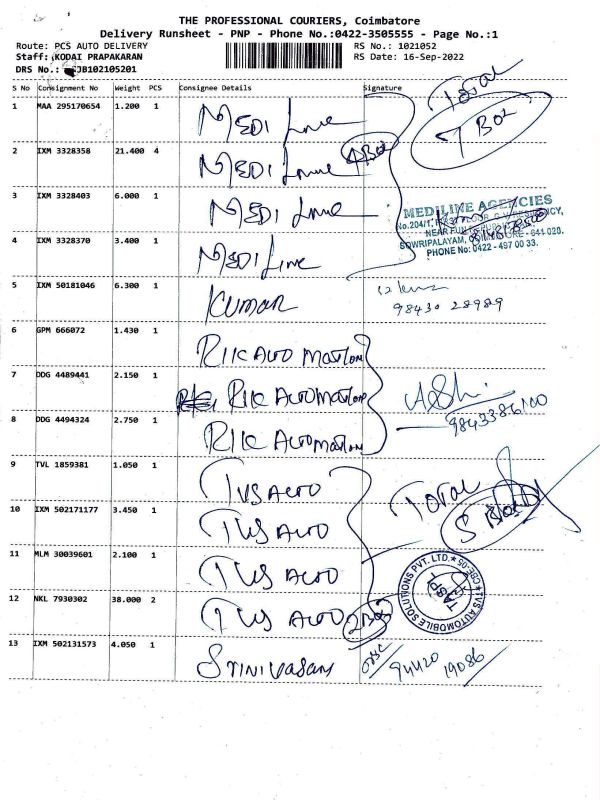 THE PROFESSIONAL COURIERS, Coimbatore
Delivery Runsheet - PNP - Phone No.:0422-3505555 - Page No.:1
Route: PCS AUTO DELIVERY RS No.: 1021052
Staff: KODAI PRAPAKARAN RS Date: 16-Sep-2022
DRS No.: JB102105201
S No Consignment No Weight PCS Consignee Details Signature
Total
7 Box
1 MAA 295170654 1.200 1 MEDI Line
2 IXM 3328358 21.400 4 MEDI Line 4Box
3 IXM 3328403 6.000 1 MEDI Line
MEDILINE AGENCIES
SOWRIPALAYAM, COIMBATORE - 641 028.
PHONE No: 0422 - 497 00 33.
4 IXM 3328370 3.400 1 MEDI Line
5 IXM 50181046 6.300 1 KUMAR
98430 28989
6 GPM 666072 1.430 1 RIK AUTOMATION
7 DDG 4489441 2.150 1 RIK AUTOMATION
9843386100
8 DDG 4494324 2.750 1 RIK AUTOMATION
9 TVL 1859381 1.050 1 TVS AUTO
TOTAL
5 Box
10 IXM 502171177 3.450 1 TVS AUTO
11 MLM 30039601 2.100 1 TVS AUTO
12 NKL 7930302 38.000 2 TVS AUTO 2Box
TVS AUTOMOBILE SOLUTIONS PVT. LTD. CBE-05
TASPL
13 IXM 502131573 4.050 1 Srinivasan
94420 19086